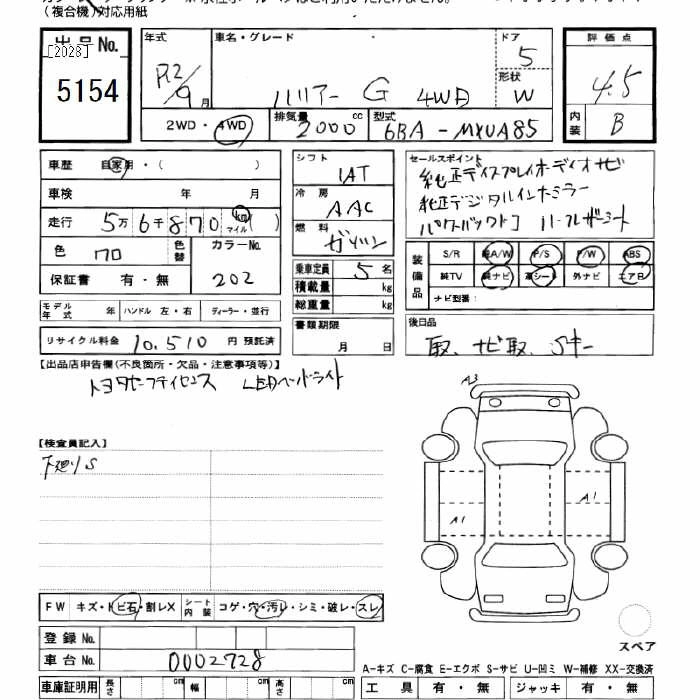 (複合機)対応用紙
出品No. 年式 車名・グレード ドア 評価点
[2028] 5
5154 R2/9月 ハリアー G 4WD 形状 W 4.5
2WD・4WD 排気量 2000 cc 型式 6BA-MXUA85 内装 B
車歴 自家用・( ) シフト IAT セールスポイント
純正ディスプレイオーディオナビ
車検 年 月 冷房 AAC 純正デジタルインナーミラー
走行 5万6千870 km マイル ( ) 燃料 ガソリン パワーバックドア ハーフレザーシート
色 クロ 色替 カラーNo. 202
乗車定員 5名 装備品 S/R 純A/W P/S P/W ABS
保証書 有・無 積載量 kg 純TV 純ナビ 革シート 外ナビ エアB
総重量 kg ナビ型番:
モデル年式 年 ハンドル 左・右 ディーラー・並行
書類期限 月 日 後日品
リサイクル料金 10,510 円 預託済 取、ナビ取、Sキー
【出品店申告欄(不良箇所・欠品・注意事項等)】
トヨタセーフティセンス LEDヘッドライト
A3
【検査員記入】
下廻りS
A1
A1
FW キズ・トビ石・割レX シート内装 コゲ・穴・汚レ・シミ・破レ・スレ
登録No. スペア
車台No. 0002728
A-キズ C-腐食 E-エクボ S-サビ U-凹ミ W-補修 XX-交換済
車庫証明用 長さ cm 幅 cm 高さ cm 工具 有・無 ジャッキ 有・無